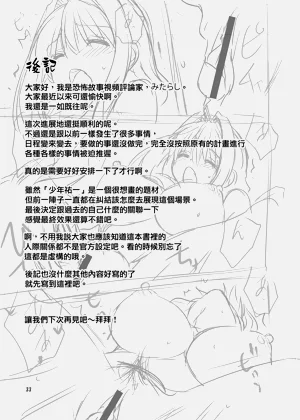 後記
大家好，我是恐怖故事視頻評論家，みたらし。
大家最近以來可還愉快啊。
我還是一如既往呢。
這次進展地還挺順利的呢。
不過還是跟以前一樣發生了很多事情，
日程變來變去，要做的事還沒做完，完全沒按照原有的計畫進行
各種各樣的事情被迫推遲。
真的是需要好好安排一下了才行啊。
雖然「少年祐一」是一個很想畫的題材
但前一陣子一直都在糾結該怎麼去展現這個場景。
最後決定跟過去的自己什麼的關聯一下
感覺最終效果還算不錯吧。
啊，不用我說大家也應該知道這本書裡的
人際關係都不是官方設定呢。看的時候別忘了
這都是虛構的哦。
後記也沒什麼其他內容好寫的了
就先寫到這裡吧。
讓我們下次再見吧～拜拜！
33